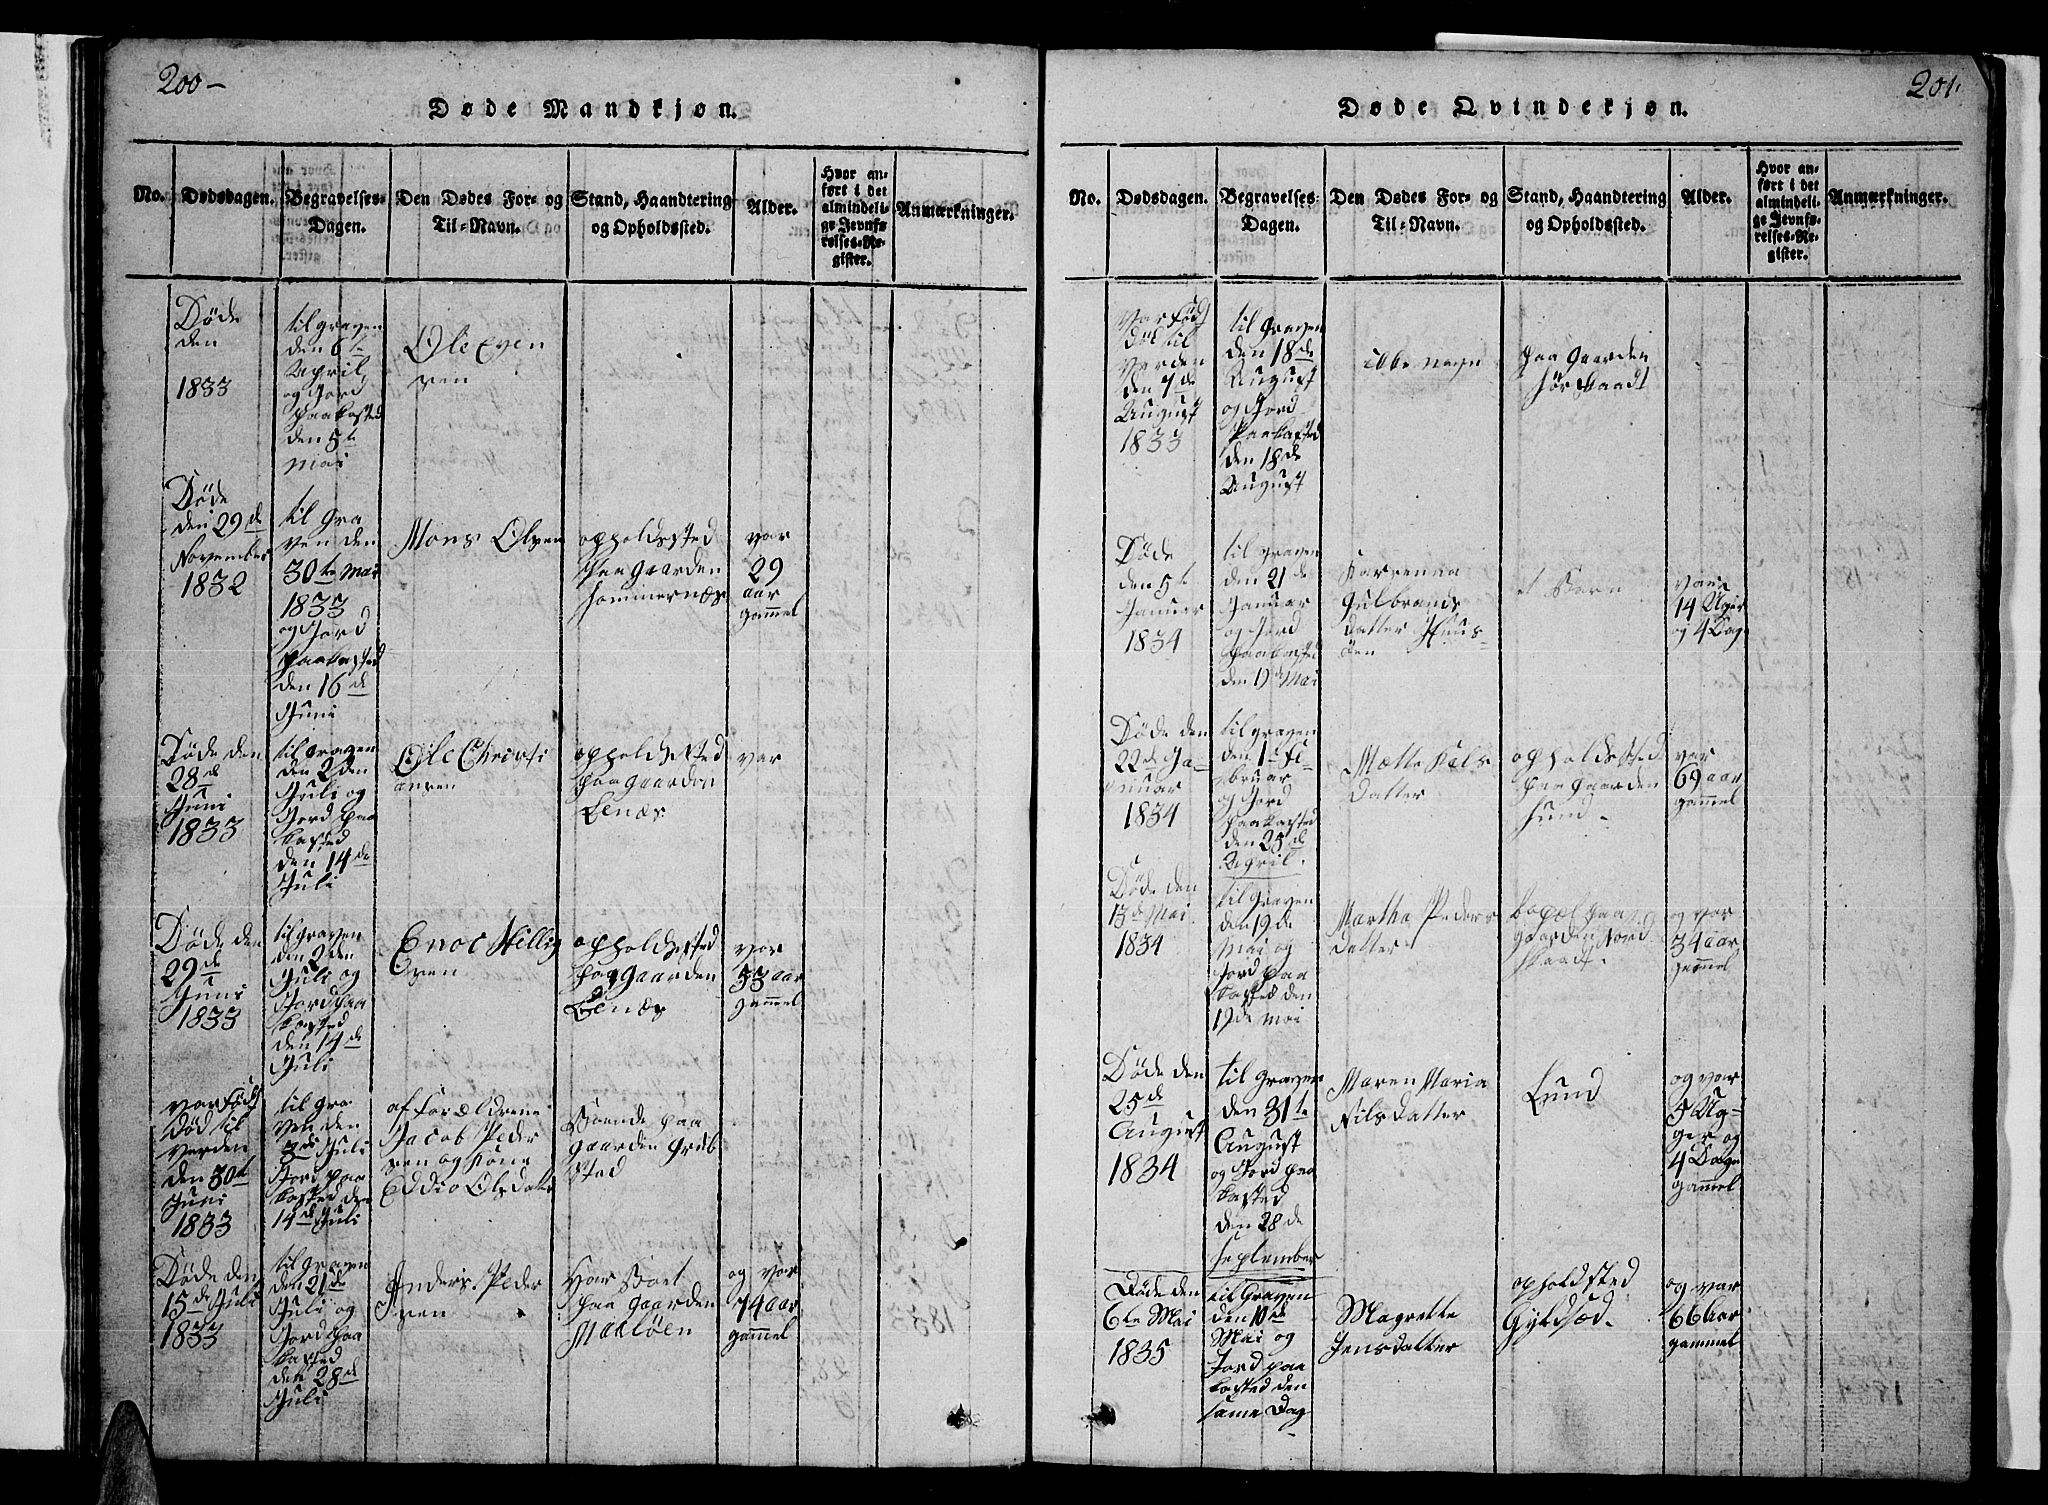 200 -
Døde Mandkjøn.
No.
Dødsdagen.
Begravelses-
Dagen.
Den Dødes For- og
Til-Navn.
Stand, Haandtering
og Opholdssted.
Alder.
Hvor an-
ført i det
almindeli-
ge Jevnfø-
relses-Re-
gister.
Anmærkninger.
Døde
den
1833
til graven
den 6te
April
og Jord
paakasted
den 5te
Mai
Ole
Døde
den 29de
November
1832
til Gra
ven den
30te Mai
1833
og Jord
paakasted
den 16de
Juni
Mons Olsen
opholdssted
paa Gaarden
Hommernæs
var
29
aar
gammel
Døde den
28de
Juni
1833
til Graven
den 2den
Juli og
Jord paa
kasted
den 14de
Juli
Ole Christi
ansen
opholdssted
paa Gaarden
Lenæs
var
Døde den
29de
Juni
1833
til Graven
den 2den
Juli og
Jord paa
kasted
den 14de
Juli
Enoc
opholdssted
paa Gaarden
Lenæs
var
33 aar
gammel
var Fød
Død til
Verden
den 30te
Juni
1833
til Gra
ven den
3de Juli
Jord paa
kasted den
14de Juli
af Forældrene
Jacob Peder
sen og Kone
Olsdatter
Boende paa
Gaarden
Døde den
15de Juli
1833
til Graven
den 21de
Juli og
Jord paa
kasted
den 28de
Juli
Anders Peder
sen
Har Boet
paa Gaarden
Makløen
og var
74 aar
gammel
201.
Døde Qvindekjøn.
No.
Dødsdagen.
Begravelses-
Dagen.
Den Dødes For- og
Til-Navn.
Stand, Haandtering
og Opholdssted.
Alder.
Hvor an-
ført i det
almindeli-
ge Jevnfø-
relses-Re-
gister.
Anmærkninger.
var Fød
Død til
Verden
den 7de
August
1833
til Graven
den 18de
August
og Jord
paakasted
den 18de
August
navn
paa Gaarden
Døde
den 5te
Januar
1834
til Graven
den 21de
Januar
og Jord
paakasted
den Mai
Gulbrands
datter
et Barn
var
14 Uger
og 4 Dag
Døde den
22de Ja-
nuar
1834
til Graven
den 1te Fe-
bruar
og Jord
paakasted
den 25de
April.
Mætte
Datter
opholdssted
paa Gaarden
Hund -
var
69 aar
gammel
Døde den
13de Mai
1834
til Graven
den 19de
Mai og
Jord paa
kasted den
19de Mai
Martha Peders
datter
bopæl paa
Gaarden Nord
og var
34 aar
gammel
Døde den
25de
August
1834
til Graven
den 31te
August
og Jord paa
kasted
den 28de
September
Maren Maria
Nilsdatter
Lund
og var
5 Ug-
ger og
4 Dage
gammel
Døde den
6te Mai
1835
til Graven
den 10de
Mai og
Jord paa
kasted den
same Dag
Magrette
Jensdatter
opholdsted
og var
66 aar
gammel